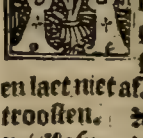 en laet niet af.
trooſten.